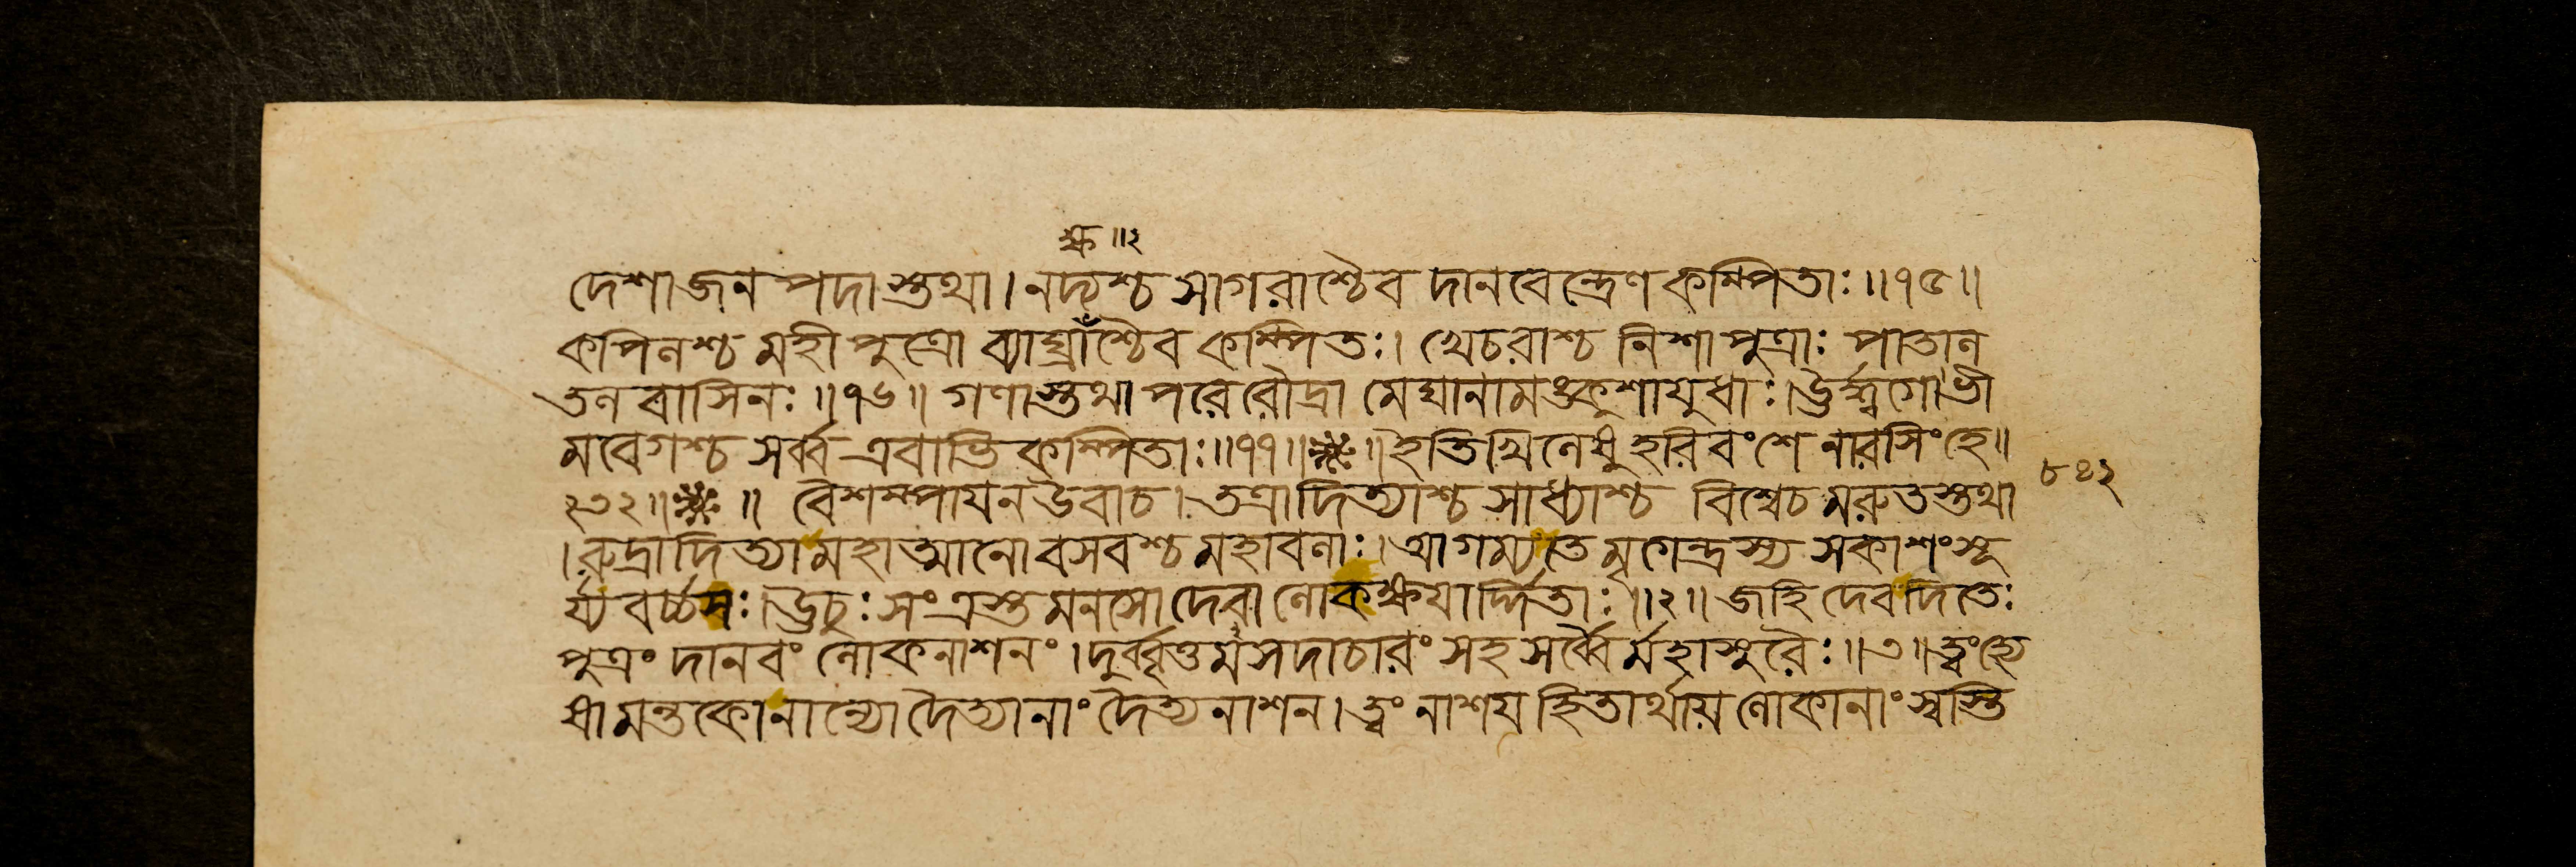 ক্ষ॥২
দেশাজনপদাস্তথা। নদ্যশ্চ সাগরাশ্চৈব দানবেন্দ্রেণ কম্পিতাঃ॥১৫॥
কপিলশ্চ মহীপুত্রো ব্যাঘ্রাঁশ্চৈব কম্পিতঃ। খেচরাশ্চ নিশাপুত্রাঃ পাতাল
তলবাসিনঃ॥১৬॥ গণাস্তথাপরেরৌদ্রা মেঘনামঙ্কুশাযুধাঃ। ঊর্দ্ধ্বগোভী
মবেগশ্চ সর্ব্ব এবাভিকম্পিতাঃ॥১৭॥ ॥ইতি খিলেষু হরিবংশে নারসিংহে॥
২৩২॥ ॥ বৈশম্পাযন উবাচ। তত্রাদিত্যাশ্চ সাধ্যাশ্চ বিশ্বেচ মরুতস্তথা
।রুদ্রাদিত্যা মহাত্মানো বসবশ্চ মহাবলাঃ। আগম্য তে মৃগেন্দ্রস্য সকাশং সূ
র্য্যবর্চ্চসঃ। ঊচুঃ সংত্রস্তমনসো দেবা লোকক্ষযার্দ্দিতাঃ॥২॥ জহি দেব দিতেঃ
পুত্রং দানবং লোকনাশনং। দুর্ব্বৃত্তমসদাচারং সহ সর্ব্বৈর্মহাসুরৈঃ॥৩॥ ত্বং হ্যে
ষামন্তকো নান্যো দৈত্যানাং দৈত্যনাশন। ত্বং নাশয হিতার্থায লোকানাং স্বস্তি
৮৪২